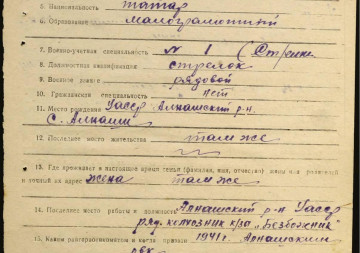 5. Национальность татар
6. Образование малограмотный
7. Военно-учетная специальность № 1 (Стрелк
8. Должностная квалификация стрелок
9. Военное звание рядовой
10. Гражданская специальность нет
11. Место рождения Уасср. Алнашский р-н
с. Алнаши
12. Последнее место жительства там же
13. Где проживает в настоящее время семья (фамилия, имя, отчество)
и точный их адрес жена там же
14. Последнее место работы и должность Алнашский р-н Уасср
ряд. колхозник к/за „Безбожник"
15. Каким райвоенкоматом и когда призван 1941 г. Алнашским
рвк